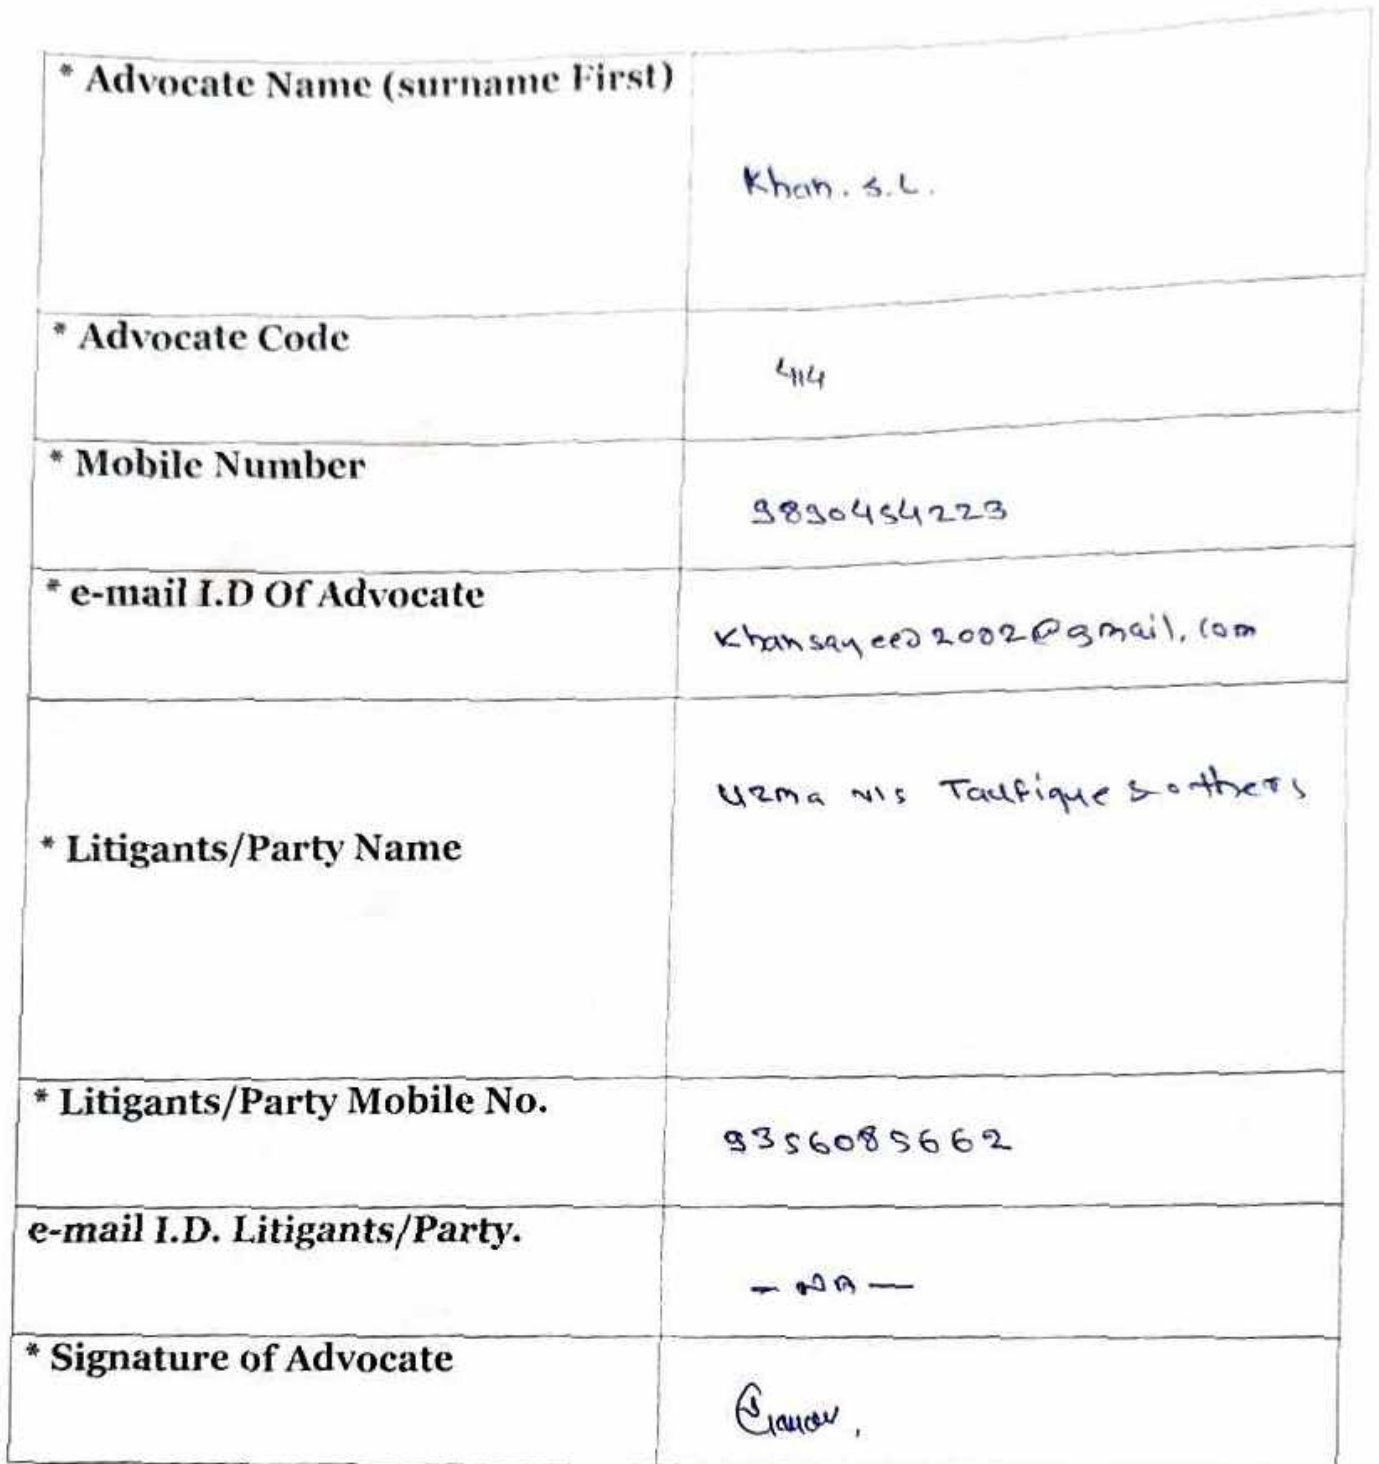 * Advocate Name (surname First)
Khan. S.L.
* Advocate Code
414
* Mobile Number
9890454223
* e-mail I.D Of Advocate
Khansayeed2002@gmail.com
* Litigants/Party Name
Uzma v/s Taufique & others
* Litigants/Party Mobile No.
9356085662
e-mail I.D. Litigants/Party.
- NA -
* Signature of Advocate